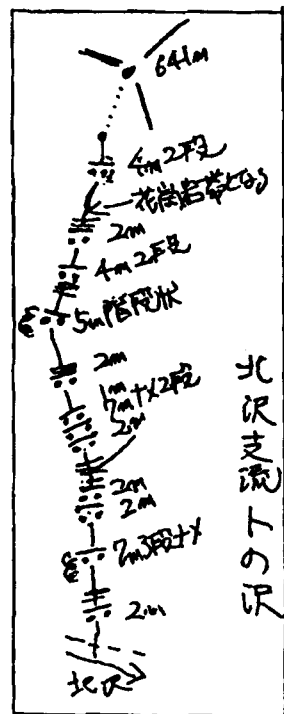 641m
4m2段
花崗岩帯となる
2m
4m2段
5m階段状
2m
1m
7m+X2段
2m
2m
2m
7m3段+X
2m
北沢
北沢支流トの沢